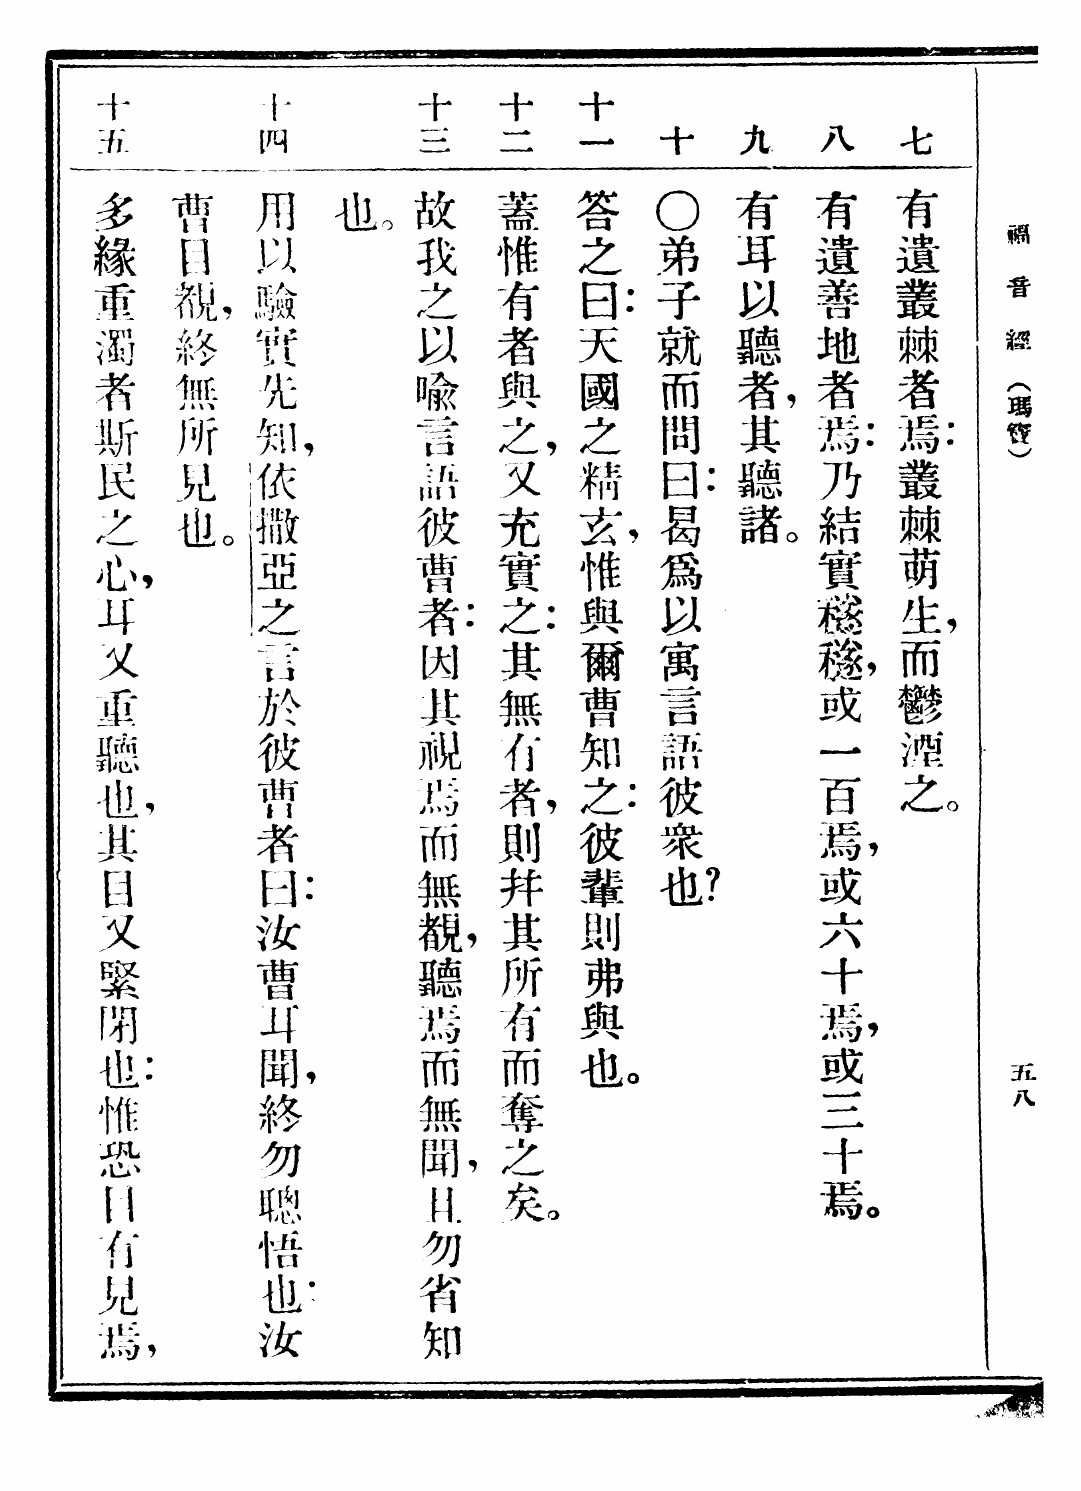 福音經（瑪竇）
五八
七
有遺叢棘者焉：叢棘萌生，而鬱湮之。
八
有遺善地者焉：乃結實穟穟，或一百焉，或六十焉，或三十焉。
九
有耳以聽者，其聽諸。
十
〇弟子就而問曰：曷爲以寓言語彼衆也？
十一
答之曰：天國之精玄，惟與爾曹知之：彼輩則弗與也。
十二
蓋惟有者與之，又充實之：其無有者，則幷其所有而奪之矣。
十三
故我之以喩言語彼曹者：因其視焉而無覩，聽焉而無聞，且勿省知
也。
十四
用以驗實先知，依撒亞之言於彼曹者曰：汝曹耳聞，終勿聰悟也：汝
曹目覩，終無所見也。
十五
多緣重濁者斯民之心，耳又重聽也，其目又緊閉也：惟恐目有見焉，